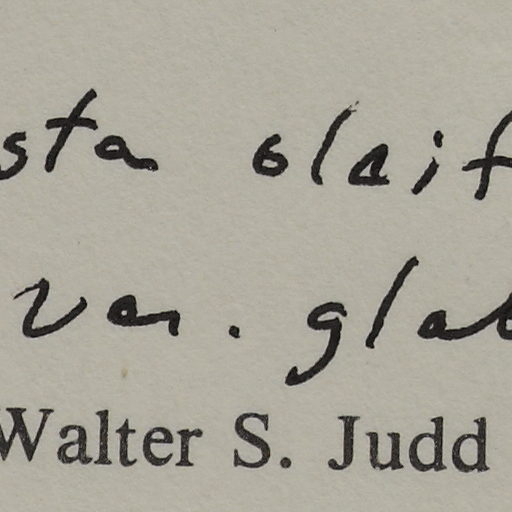 sta oleif
var. glab
Walter S. Judd